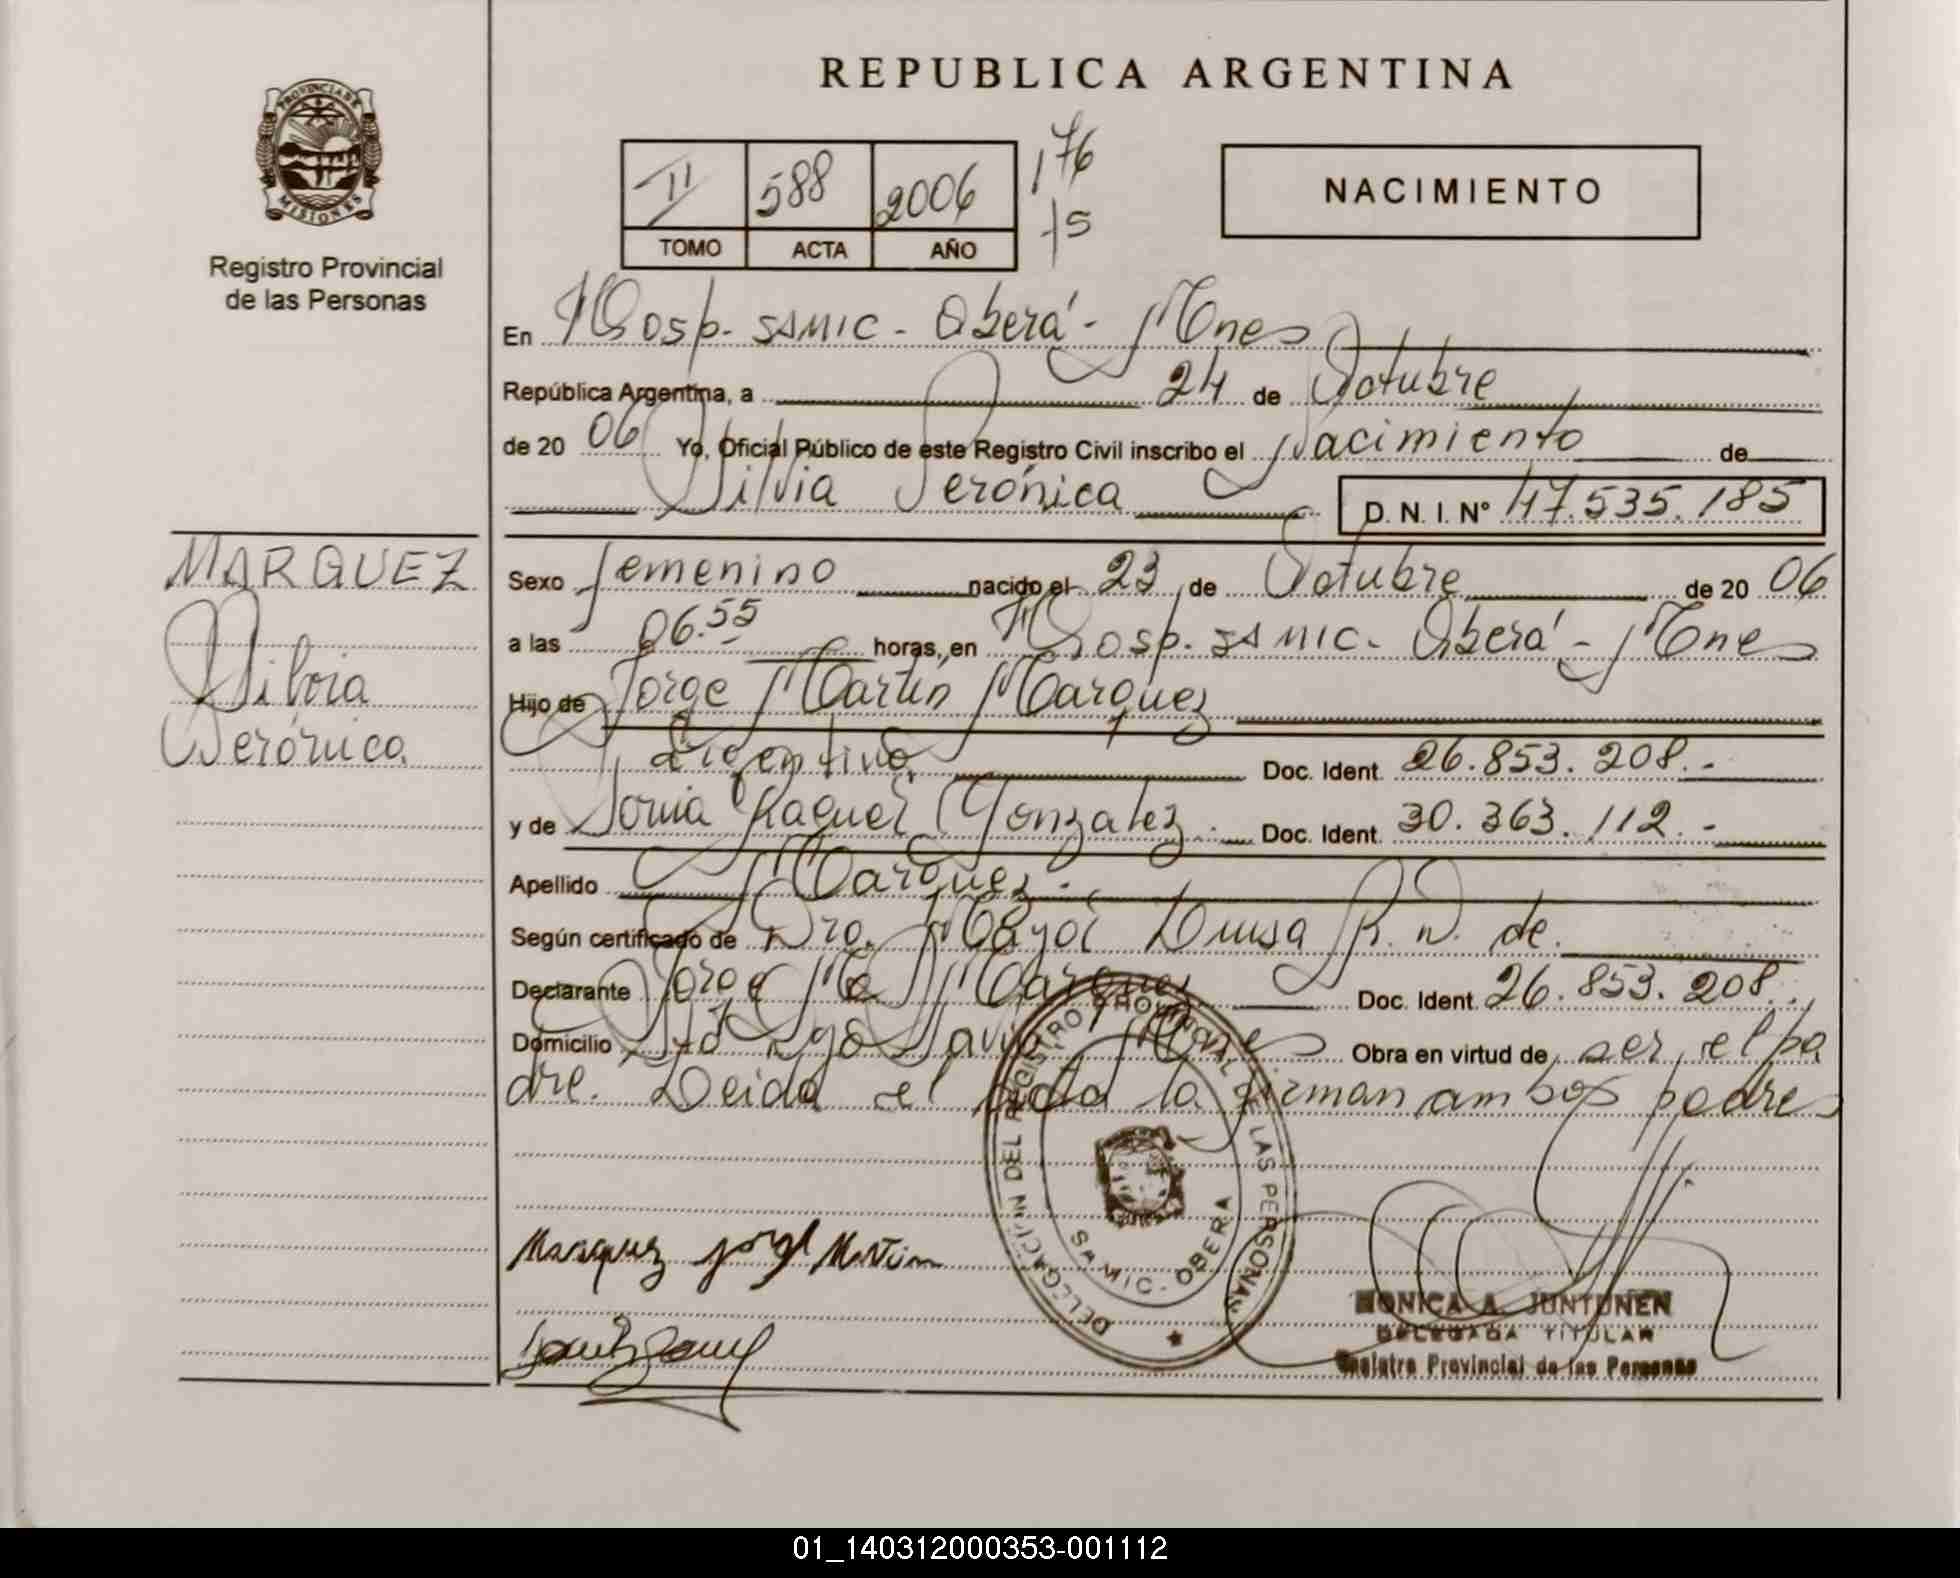 PROVINCIA DE
MISIONES
Registro Provincial
de las Personas
MARQUEZ
Silvia
Verónica.
REPUBLICA ARGENTINA
II 588 2006 176
TOMO ACTA AÑO 75
NACIMIENTO
En Hosp. SAMIC - Oberá - Mnes
República Argentina, a 24 de Octubre
de 20 06 Yo, Oficial Público de este Registro Civil inscribo el Nacimiento de
Silvia Verónica D. N. I. N° 47.535.185
Sexo femenino nacido el 23 de Octubre de 20 06
a las 06.55 horas, en Hosp. SAMIC - Oberá - Mnes
Hijo de Jorge Martín Marquez
argentino. Doc. Ident. 26.853.208.-
y de Sonia Raquel Gonzalez. Doc. Ident. 30.363.112.-
Apellido Marquez.-
Según certificado de Dra. Mayol Luisa R. N. de.
Declarante Jorge Marquez Doc. Ident. 26.853.208.
Domicilio Mnes Obra en virtud de ser el pa
dre. Leida el acta la firman ambos padres
DELEGACION DEL REGISTRO PROVINCIAL DE LAS PERSONAS
SAMIC - OBERA
Marquez Jorge Martin
MONICA A. JUNTUNEN
DELEGADA TITULAR
Registro Provincial de las Personas
01_140312000353-001112